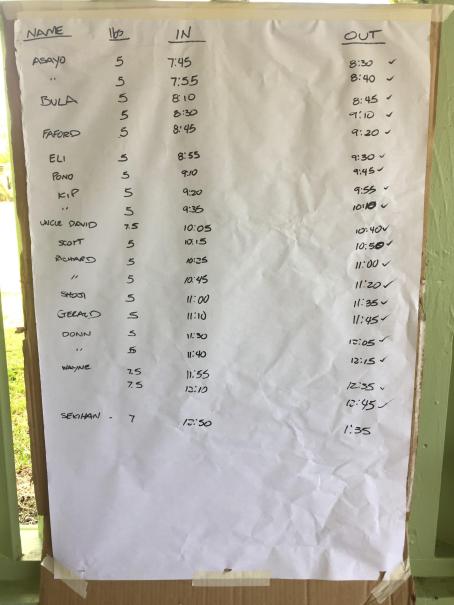 NAME lbs IN OUT
ASAYO 5 7:45 8:30 ✓
" 5 7:55 8:40 ✓
BULA 5 8:10 8:45 ✓
5 8:30 9:10 ✓
FAFORD 5 8:45 9:20 ✓
ELI 5 8:55 9:30 ✓
PONO 5 9:10 9:45 ✓
KIP 5 9:20 9:55 ✓
" 5 9:35 10:10 ✓
UNCLE DAVID 7.5 10:05 10:40 ✓
SCOTT 5 10:15 10:50 ✓
RICHARD 5 10:25 11:00 ✓
" 5 10:45 11:20 ✓
SHOJI 5 11:00 11:35 ✓
GERALD 5 11:10 11:45 ✓
DONN 5 11:30 12:05 ✓
" 5 11:40 12:15 ✓
WAYNE 7.5 11:55 12:35 ✓
7.5 12:10 12:45 ✓
SEKIHAN - 7 12:50 1:35